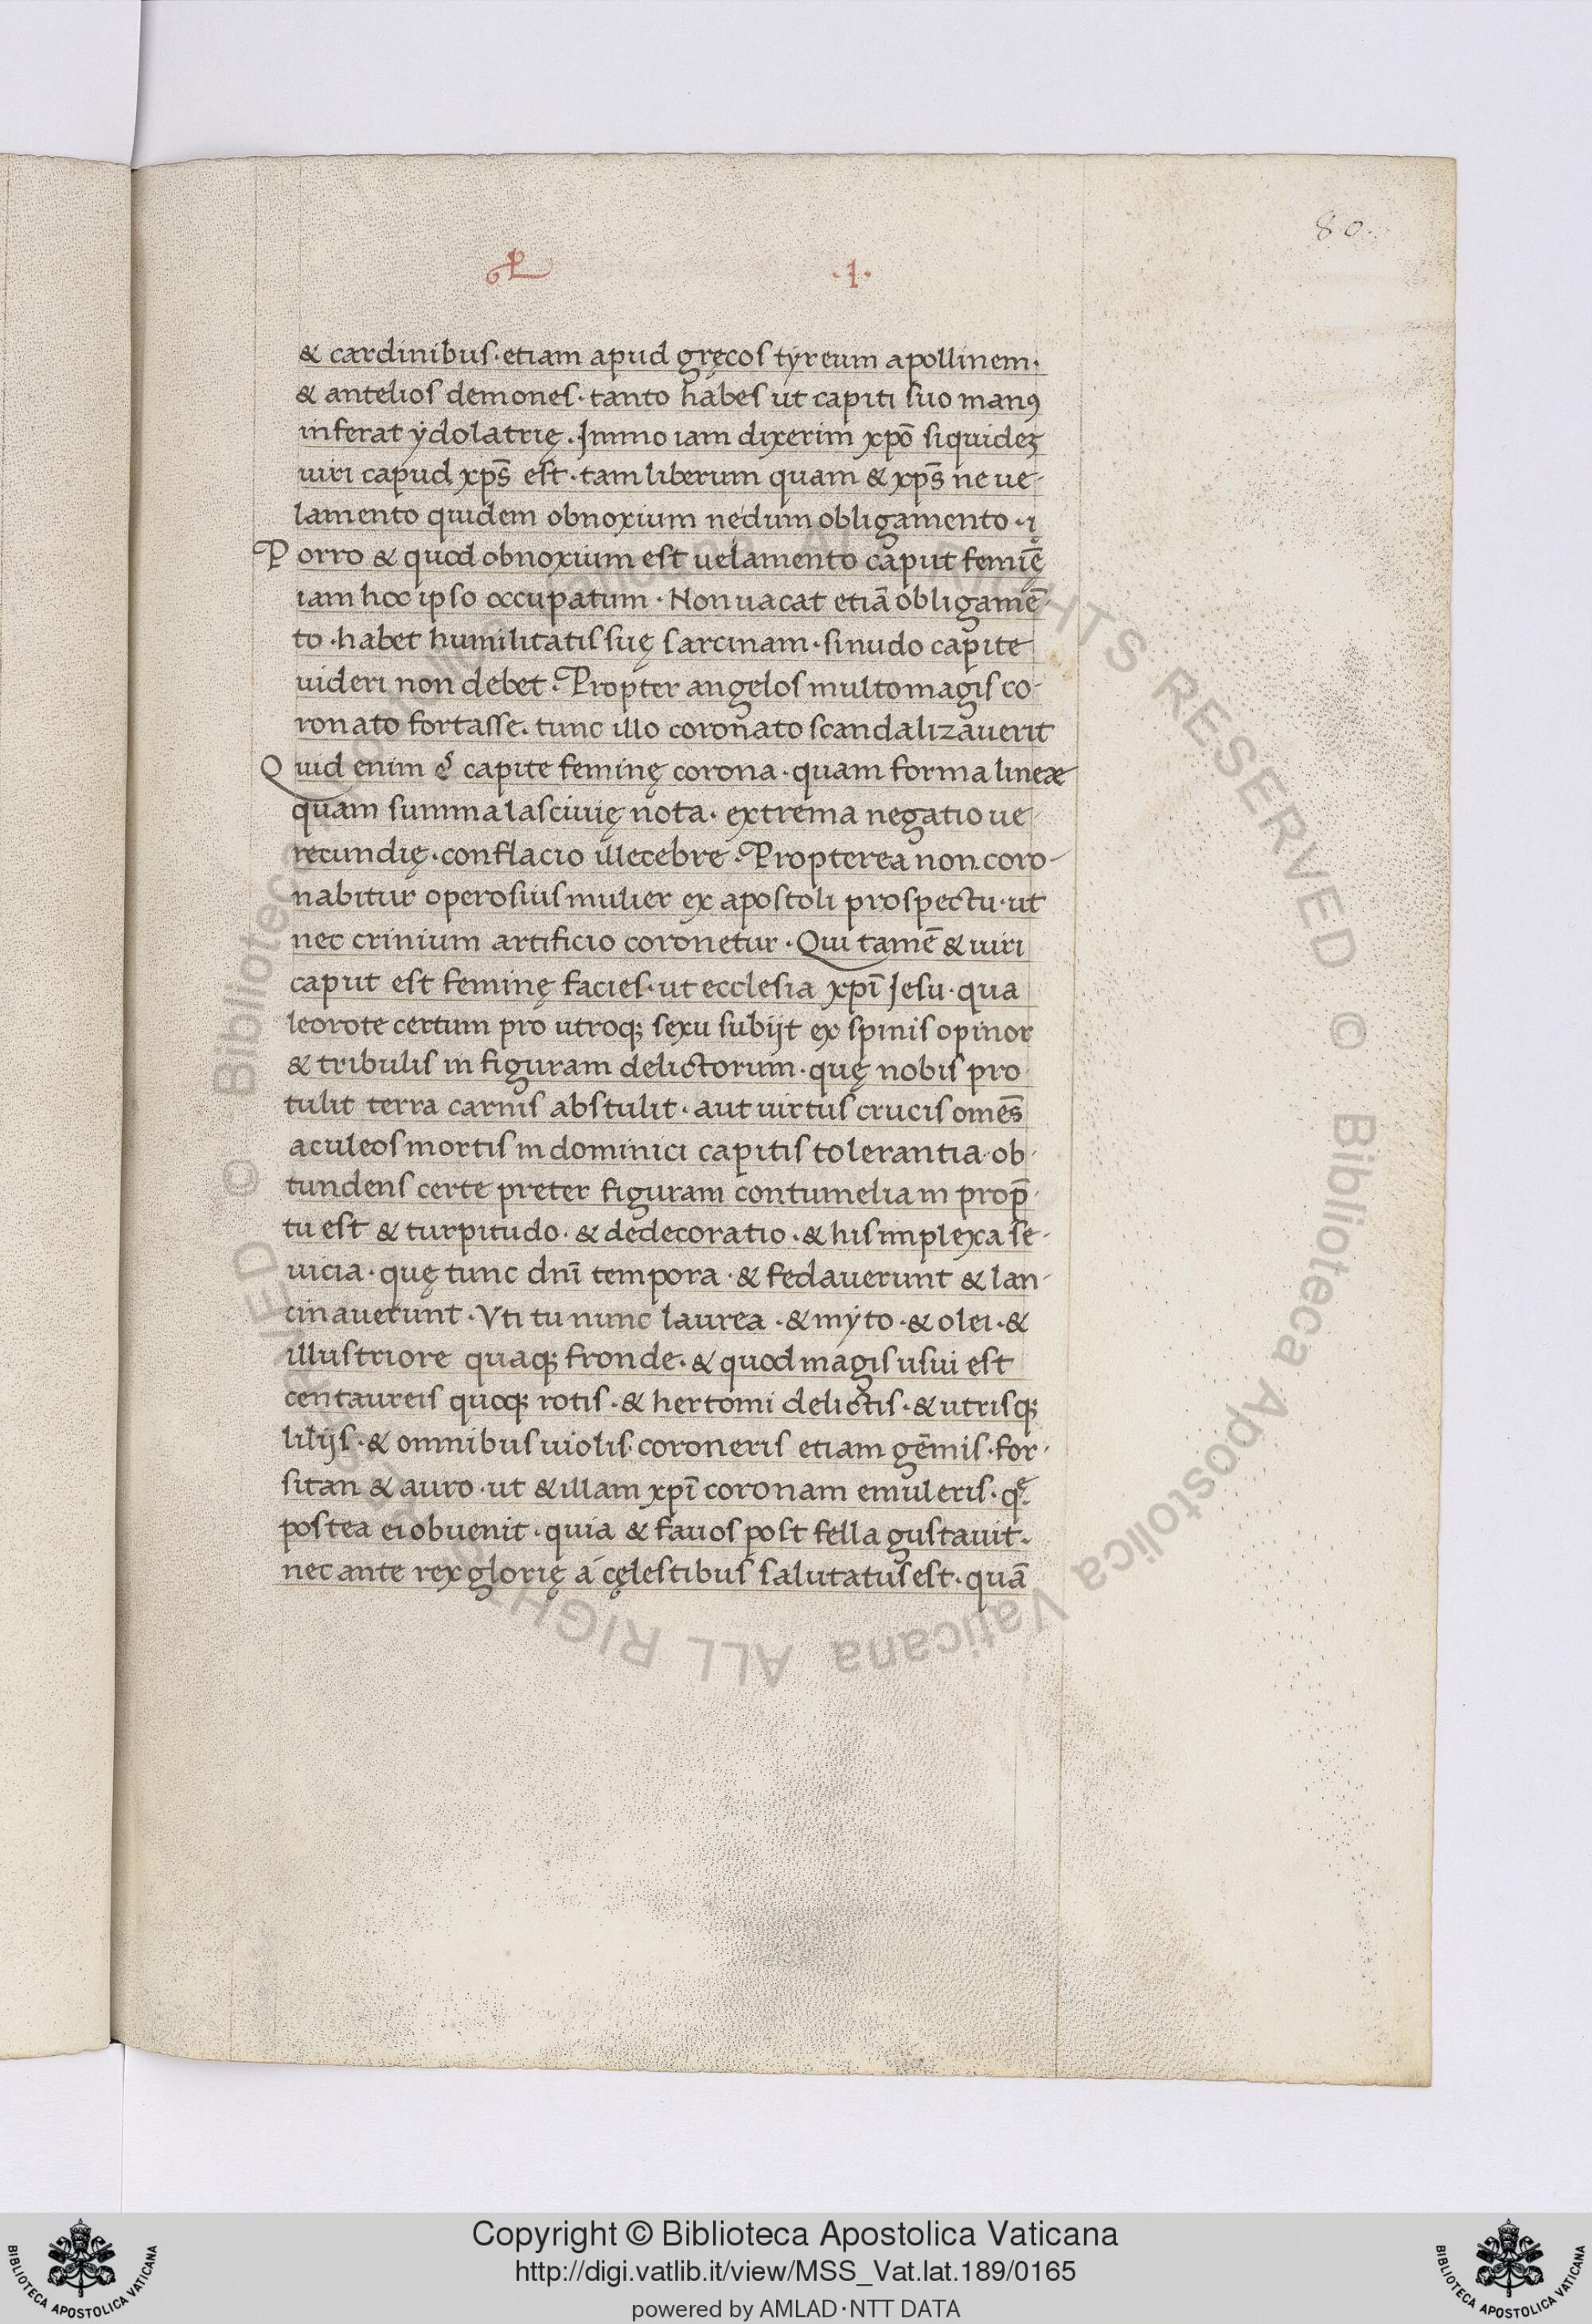 80.
ꝑ ·1·
& cardinibus · etiam apud gręcos tyreum apollinem ·
& antelios demones · tanto habes ut capiti suo manꝯ
inferat ydolatrię . Immo iam dixerim xpō siquideꝫ
uiri capud xps̄ est · tam liberum quam & xps̄ ne ue-
lamento quidem obnoxium nedum obligamento ·
Porro & quod obnoxium est uelamento caput femīę
iam hoc ipso occupatum · Non uacat etiā obligamē-
to · habet humilitatis suę sarcinam · si nudo capite
uideri non debet . Propter angelos multo magis co-
ronato fortasse . tunc illo coronato scandalizauerit
Quid enim ē capite feminę corona · quam forma lineæ
quam summa lasciuię nota · extrema negatio ue-
recundię · conflacio illecebre · Propterea non coro-
nabitur operosius mulier ex apostoli prospectu · ut
nec crinium artificio coronetur · Qui tamē & uiri
caput est feminę facies · ut ecclesia xpī Jesu · qua
leorote certum pro utroqꝫ sexu subijt ex spinis opinor
& tribulis in figuram delictorum · quę nobis pro
tulit terra carnis abstulit · aut uirtus crucis omēs
aculeos mortis in dominici capitis tolerantia · ob-
tundens certe preter figuram contumeliam prop̄-
tu est & turpitudo · & dedecoratio · & his implexa se-
uicia · quę tunc dnī tempora · & fedauerunt & lan-
cinauerunt · Vti tu nunc laurea · & myto · & olei · &
illustriore quaqꝫ fronde . & quod magis usui est
centaureis quoqꝫ rotis · & hertomi delictis · & utrisqꝫ
lilijs · & omnibus uiolis coroneris etiam gēmis · for-
sitan & auro · ut & illam xpī coronam emuleris · qͤ
postea ei obuenit · quia & fauos post fella gustauit ·
nec ante rex glorię á cęlestibus salutatus est · quā
Copyright © Biblioteca Apostolica Vaticana
http://digi.vatlib.it/view/MSS_Vat.lat.189/0165
powered by AMLAD · NTT DATA
BIBLIOTECA APOSTOLICA VATICANA
BIBLIOTECA APOSTOLICA VATICANA
© Biblioteca Apostolica Vaticana ALL RIGHTS RESERVED © Biblioteca Apostolica Vaticana ALL RIGHTS RESERVED